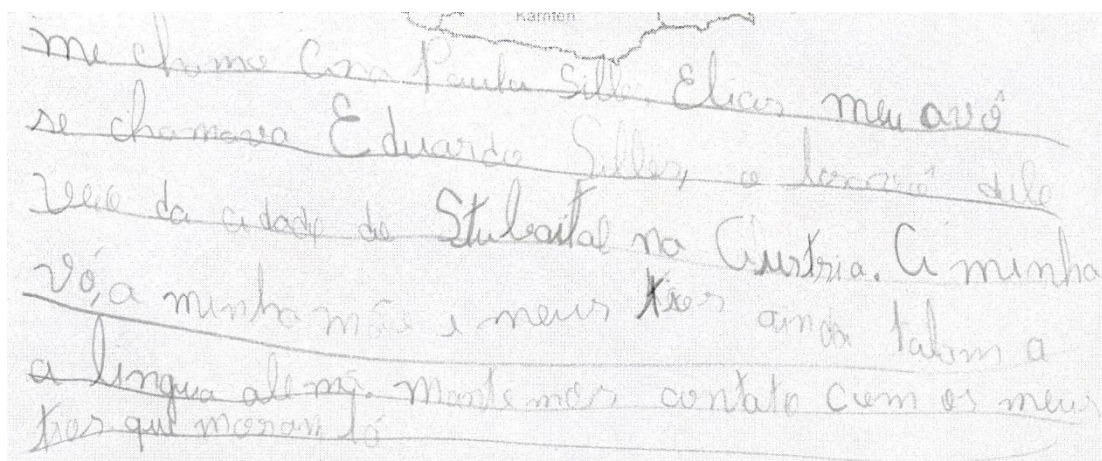 Kärnten
me chamo Ana Paula Siller Elias meu avô
se chamava Eduardo Siller, o bisavô dele
veio da cidade de Stubaital na Áustria. A minha
vó, a minha mãe e meus tios ainda falam a
a língua alemã. Mantemos contato com os meus
tios que moram lá